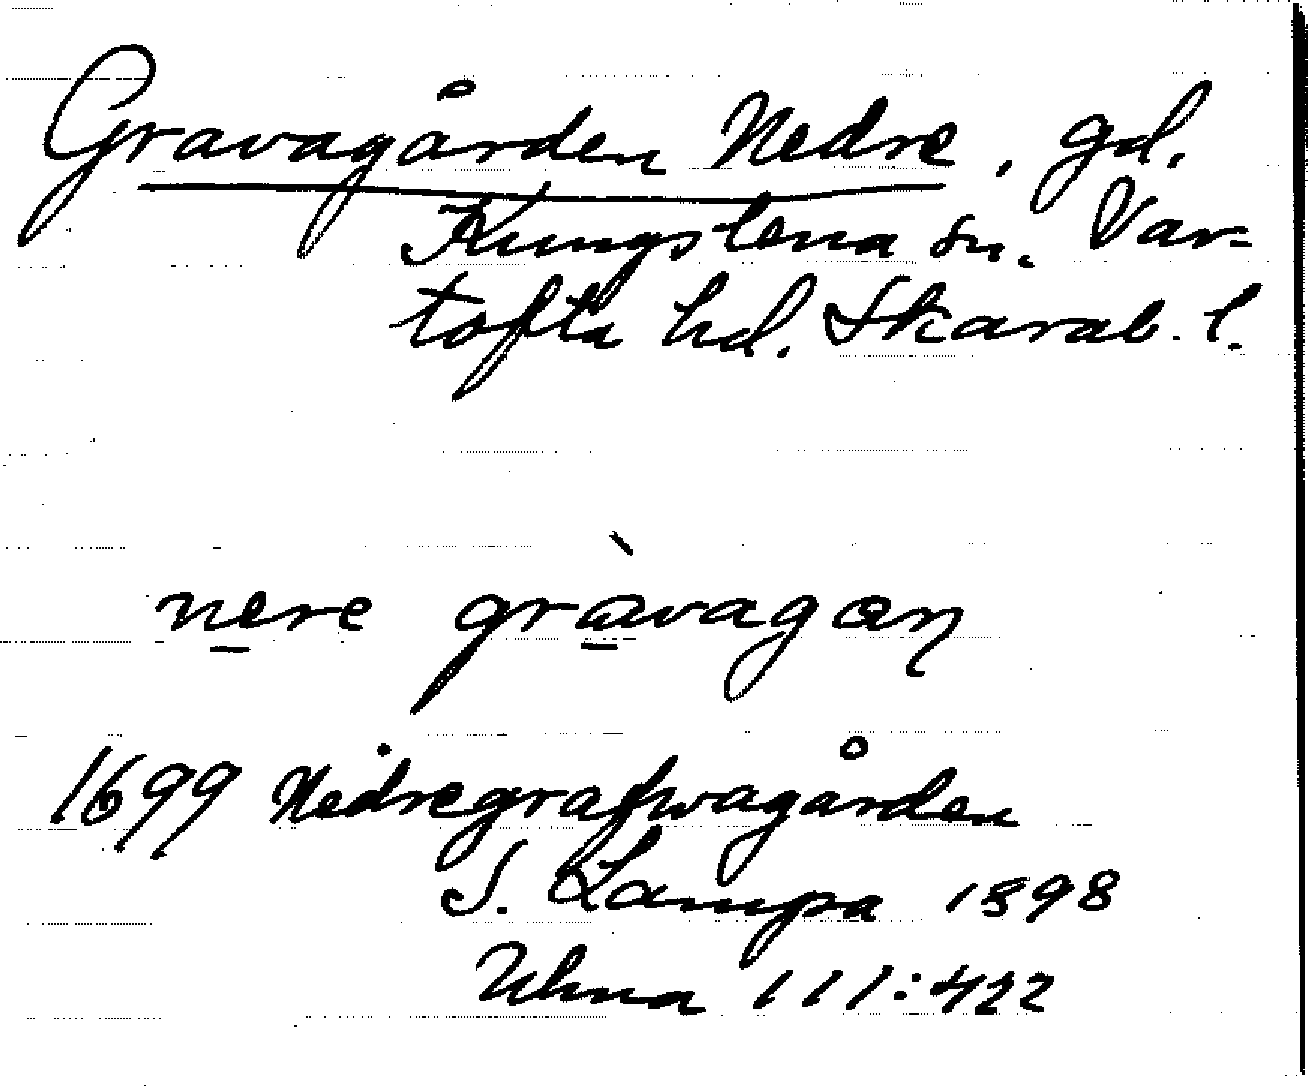 Gravagården Nedre, gd.
Kungslena sn. Var-
tofta hd. Skarab. l.
nere gràvagaɳ
1699 Nedregrafwagården
S. Lampa 1898
Uhna 111:422